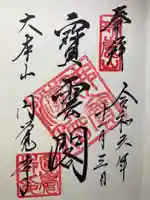 奉拝
令和元年
十一月三日
寶雲閣
大本山
円覚寺